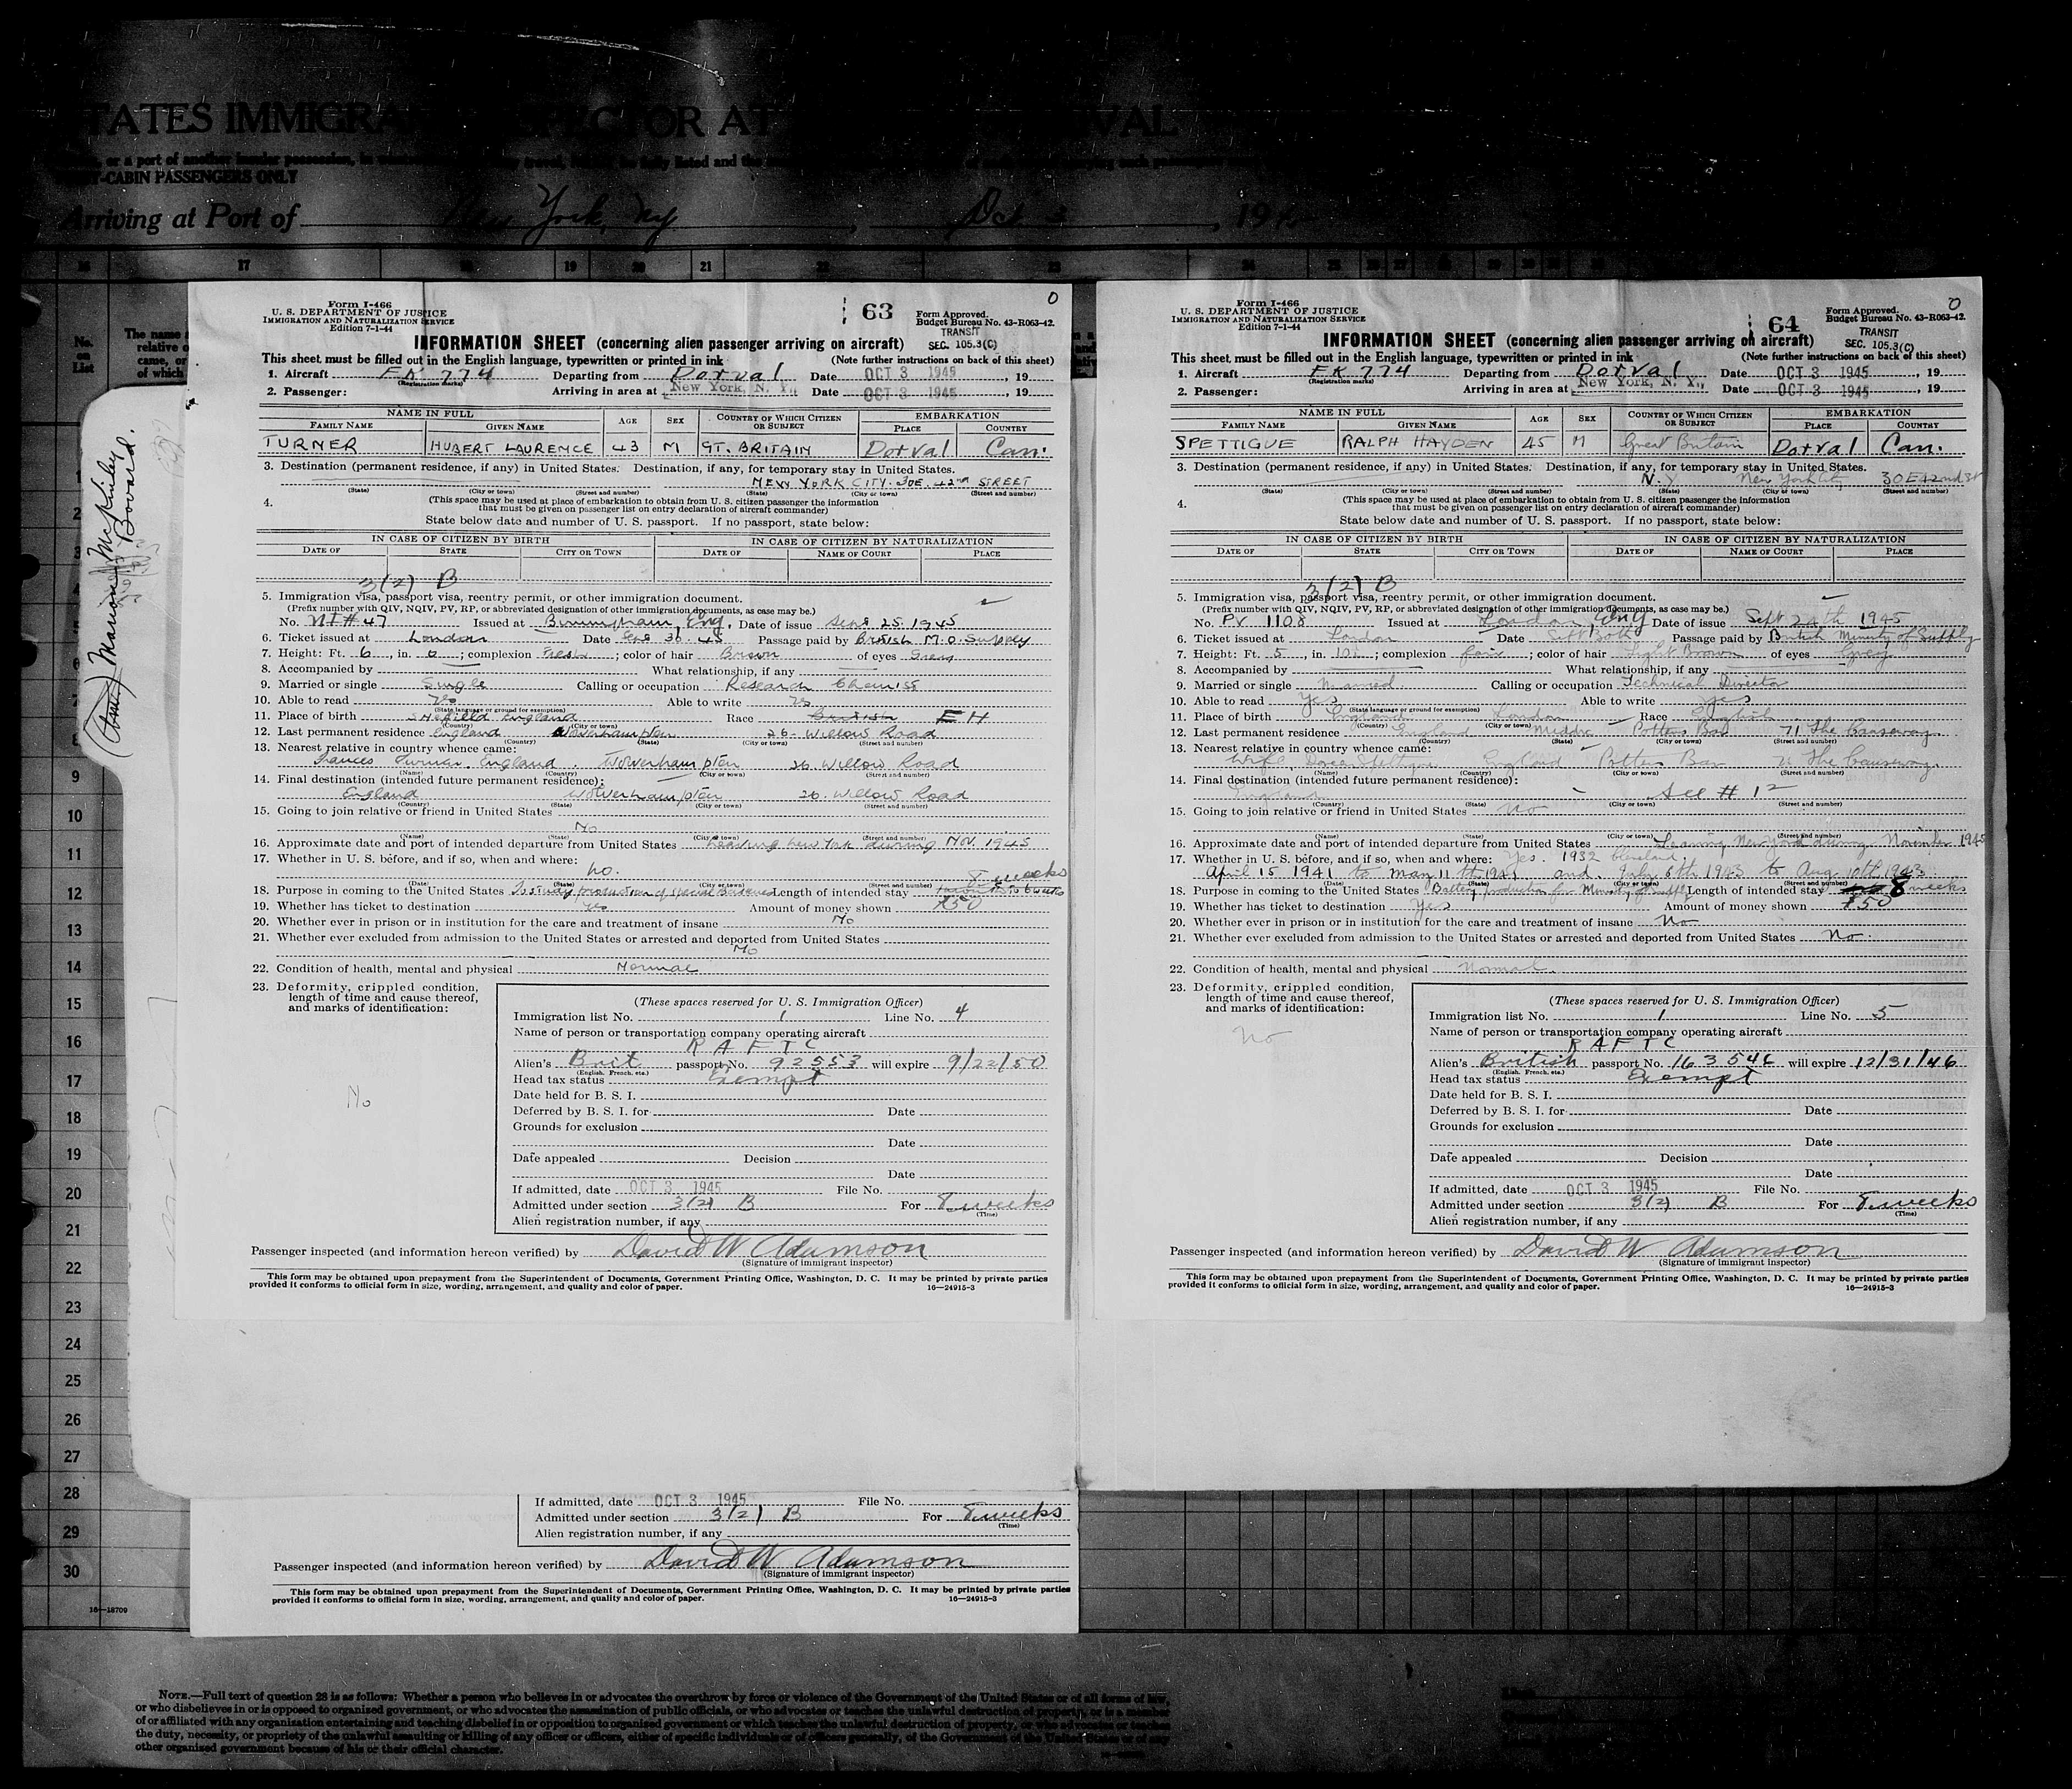 TATES IMMIGRA
ECTOR AT
VAL
, or a port of another insular possession, in
-CABIN PASSENGERS ONLY
Arriving at Port of New York, NY , Oct 3 , 19
16 17 18 19 20 21 22 23 24
No. on List
The name
relative o
came, or
of which
Marion McKinley
Bovard.
9
10
11
12
13
14
15
16
17
18
19
20
21
22
23
24
25
26
27
28
29
30
16—18709
Form I-466
U. S. DEPARTMENT OF JUSTICE
IMMIGRATION AND NATURALIZATION SERVICE
Edition 7-1-44
63
0
Form Approved.
Budget Bureau No. 43-R063-42.
TRANSIT
SEC. 105.3(C)
INFORMATION SHEET (concerning alien passenger arriving on aircraft)
This sheet must be filled out in the English language, typewritten or printed in ink (Note further instructions on back of this sheet)
1. Aircraft FK 774 Departing from Dorval Date OCT 3 1945, 19
(Registration marks)
2. Passenger: Arriving in area at New York, N. Y., Date OCT 3 1945, 19
NAME IN FULL AGE SEX COUNTRY OF WHICH CITIZEN OR SUBJECT EMBARKATION
FAMILY NAME GIVEN NAME PLACE COUNTRY
TURNER HUBERT LAURENCE 43 M GT. BRITAIN Dorval Can.
3. Destination (permanent residence, if any) in United States. Destination, if any, for temporary stay in United States.
NEW YORK CITY. 30E. 42nd STREET
(State) (City or town) (Street and number) (State) (City or town) (Street and number)
4. (This space may be used at place of embarkation to obtain from U. S. citizen passenger the information
that must be given on passenger list on entry declaration of aircraft commander)
State below date and number of U. S. passport. If no passport, state below:
IN CASE OF CITIZEN BY BIRTH IN CASE OF CITIZEN BY NATURALIZATION
DATE OF STATE CITY OR TOWN DATE OF NAME OF COURT PLACE
3(2) B
5. Immigration visa, passport visa, reentry permit, or other immigration document.
(Prefix number with QIV, NQIV, PV, RP, or abbreviated designation of other immigration documents, as case may be.)
No. NI #47 Issued at Birmingham, Eng. Date of issue Sep 25. 1945
6. Ticket issued at London Date Sep 30. 45 Passage paid by British M.O. Supply
7. Height: Ft. 6, in. 0; complexion Fresh; color of hair Brown of eyes Grey
8. Accompanied by What relationship, if any
9. Married or single Single Calling or occupation Research Chemist
10. Able to read Yes Able to write Yes
(State language or ground for exemption)
11. Place of birth Sheffield England Race British EH
12. Last permanent residence England Wolverhampton 26 Willow Road
(Country) (State) (City or town) (Street and number)
13. Nearest relative in country whence came:
Frances Turner. England. Wolverhampton 26 Willow Road
(Name) (Country) (City or town) (Street and number)
14. Final destination (intended future permanent residence):
England Wolverhampton 26. Willow Road
(Country) (State) (City or town) (Street and number)
15. Going to join relative or friend in United States
No
(Name) (State) (City or town) (Street and number)
16. Approximate date and port of intended departure from United States Leaving New York during NOV. 1945
17. Whether in U. S. before, and if so, when and where:
No. 8 weeks
(Date) (State) (City or town) (Street and number)
18. Purpose in coming to the United States To study production of Length of intended stay
19. Whether has ticket to destination Yes Amount of money shown £50
20. Whether ever in prison or in institution for the care and treatment of insane No
21. Whether ever excluded from admission to the United States or arrested and deported from United States
No
22. Condition of health, mental and physical Normal
23. Deformity, crippled condition,
length of time and cause thereof,
and marks of identification:
No
(These spaces reserved for U. S. Immigration Officer)
Immigration list No. 1 Line No. 4
Name of person or transportation company operating aircraft
R A F T C
Alien's Brit passport No. 92553 will expire 9/22/50
(English, French, etc.)
Head tax status Exempt
Date held for B. S. I.
Deferred by B. S. I. for Date
Grounds for exclusion
Date
Date appealed Decision
Date
If admitted, date OCT 3 1945 File No.
Admitted under section 3(2) B For 8 weeks
(Time)
Alien registration number, if any
Passenger inspected (and information hereon verified) by David W Adamson
(Signature of immigrant inspector)
This form may be obtained upon prepayment from the Superintendent of Documents, Government Printing Office, Washington, D. C. It may be printed by private parties
provided it conforms to official form in size, wording, arrangement, and quality and color of paper. 16—24915-3
Form I-466
U. S. DEPARTMENT OF JUSTICE
IMMIGRATION AND NATURALIZATION SERVICE
Edition 7-1-44
64
0
Form Approved.
Budget Bureau No. 43-R063-42.
TRANSIT
SEC. 105.3(C)
INFORMATION SHEET (concerning alien passenger arriving on aircraft)
This sheet must be filled out in the English language, typewritten or printed in ink (Note further instructions on back of this sheet)
1. Aircraft FK 774 Departing from Dorval Date OCT 3 1945, 19
(Registration marks)
2. Passenger: Arriving in area at New York, N. Y., Date OCT 3 1945, 19
NAME IN FULL AGE SEX COUNTRY OF WHICH CITIZEN OR SUBJECT EMBARKATION
FAMILY NAME GIVEN NAME PLACE COUNTRY
SPETTIGUE RALPH HAYDEN 45 M Great Britain Dorval Can.
3. Destination (permanent residence, if any) in United States. Destination, if any, for temporary stay in United States.
N.Y New York City 30 E 42nd St
(State) (City or town) (Street and number) (State) (City or town) (Street and number)
4. (This space may be used at place of embarkation to obtain from U. S. citizen passenger the information
that must be given on passenger list on entry declaration of aircraft commander)
State below date and number of U. S. passport. If no passport, state below:
IN CASE OF CITIZEN BY BIRTH IN CASE OF CITIZEN BY NATURALIZATION
DATE OF STATE CITY OR TOWN DATE OF NAME OF COURT PLACE
3(2) B
5. Immigration visa, passport visa, reentry permit, or other immigration document.
(Prefix number with QIV, NQIV, PV, RP, or abbreviated designation of other immigration documents, as case may be.)
No. PV 1108 Issued at London, Eng Date of issue Sept 24th 1945
6. Ticket issued at London Date Sept 30th Passage paid by British Ministry of Supply
7. Height: Ft. 5, in. 10½; complexion fair; color of hair Light Brown of eyes Grey
8. Accompanied by What relationship, if any
9. Married or single Married Calling or occupation Technical Director
10. Able to read Yes Able to write Yes
(State language or ground for exemption)
11. Place of birth England London Race English
(Country) (City or town)
12. Last permanent residence England Middx Potters Bar 71 The Causeway
(Country) (State) (City or town) (Street and number)
13. Nearest relative in country whence came:
Wife England Potters Bar 71 The Causeway
(Name) (Country) (City or town) (Street and number)
14. Final destination (intended future permanent residence):
England See # 12
(Country) (State) (City or town) (Street and number)
15. Going to join relative or friend in United States No
(Name) (State) (City or town) (Street and number)
16. Approximate date and port of intended departure from United States Leaving New York during November 1945
17. Whether in U. S. before, and if so, when and where: Yes. 1932 Cleveland
April 15 1941 to May 11th 1941 and July 6th 1943 to Aug 10th 1943
(Date) (State) (City or town) (Street and number)
18. Purpose in coming to the United States Battery production for Ministry of Supply Length of intended stay 8 weeks
19. Whether has ticket to destination Yes Amount of money shown £50
20. Whether ever in prison or in institution for the care and treatment of insane No
21. Whether ever excluded from admission to the United States or arrested and deported from United States No.
22. Condition of health, mental and physical Normal.
23. Deformity, crippled condition,
length of time and cause thereof,
and marks of identification:
No
(These spaces reserved for U. S. Immigration Officer)
Immigration list No. 1 Line No. 5
Name of person or transportation company operating aircraft
R A F T C
Alien's British passport No. 163546 will expire 12/31/46
(English, French, etc.)
Head tax status Exempt
Date held for B. S. I.
Deferred by B. S. I. for Date
Grounds for exclusion
Date
Date appealed Decision
Date
If admitted, date OCT 3 1945 File No.
Admitted under section 3(2) B For 8 weeks
(Time)
Alien registration number, if any
Passenger inspected (and information hereon verified) by David W Adamson
(Signature of immigrant inspector)
This form may be obtained upon prepayment from the Superintendent of Documents, Government Printing Office, Washington, D. C. It may be printed by private parties
provided it conforms to official form in size, wording, arrangement, and quality and color of paper. 16—24915-3
If admitted, date OCT 3 1945 File No.
Admitted under section 3(2) B For 8 weeks
(Time)
Alien registration number, if any
Passenger inspected (and information hereon verified) by David W Adamson
(Signature of immigrant inspector)
This form may be obtained upon prepayment from the Superintendent of Documents, Government Printing Office, Washington, D. C. It may be printed by private parties
provided it conforms to official form in size, wording, arrangement, and quality and color of paper. 16—24915-3
NOTE.—Full text of question 28 is as follows: Whether a person who believes in or advocates the overthrow by force or violence of the Government of the United States or of all forms of law,
or who disbelieves in or is opposed to organized government, or who advocates the assassination of public officials, or who advocates or teaches the unlawful destruction of property, or is a member
of or affiliated with any organization entertaining and teaching disbelief in or opposition to organized government or which teaches the unlawful destruction of property, or who advocates or teaches
the duty, necessity, or propriety of the unlawful assaulting or killing of any officer or officers, either of specific individuals or of officers generally, of the Government of the United States or of any
other organized government because of his or their official character.